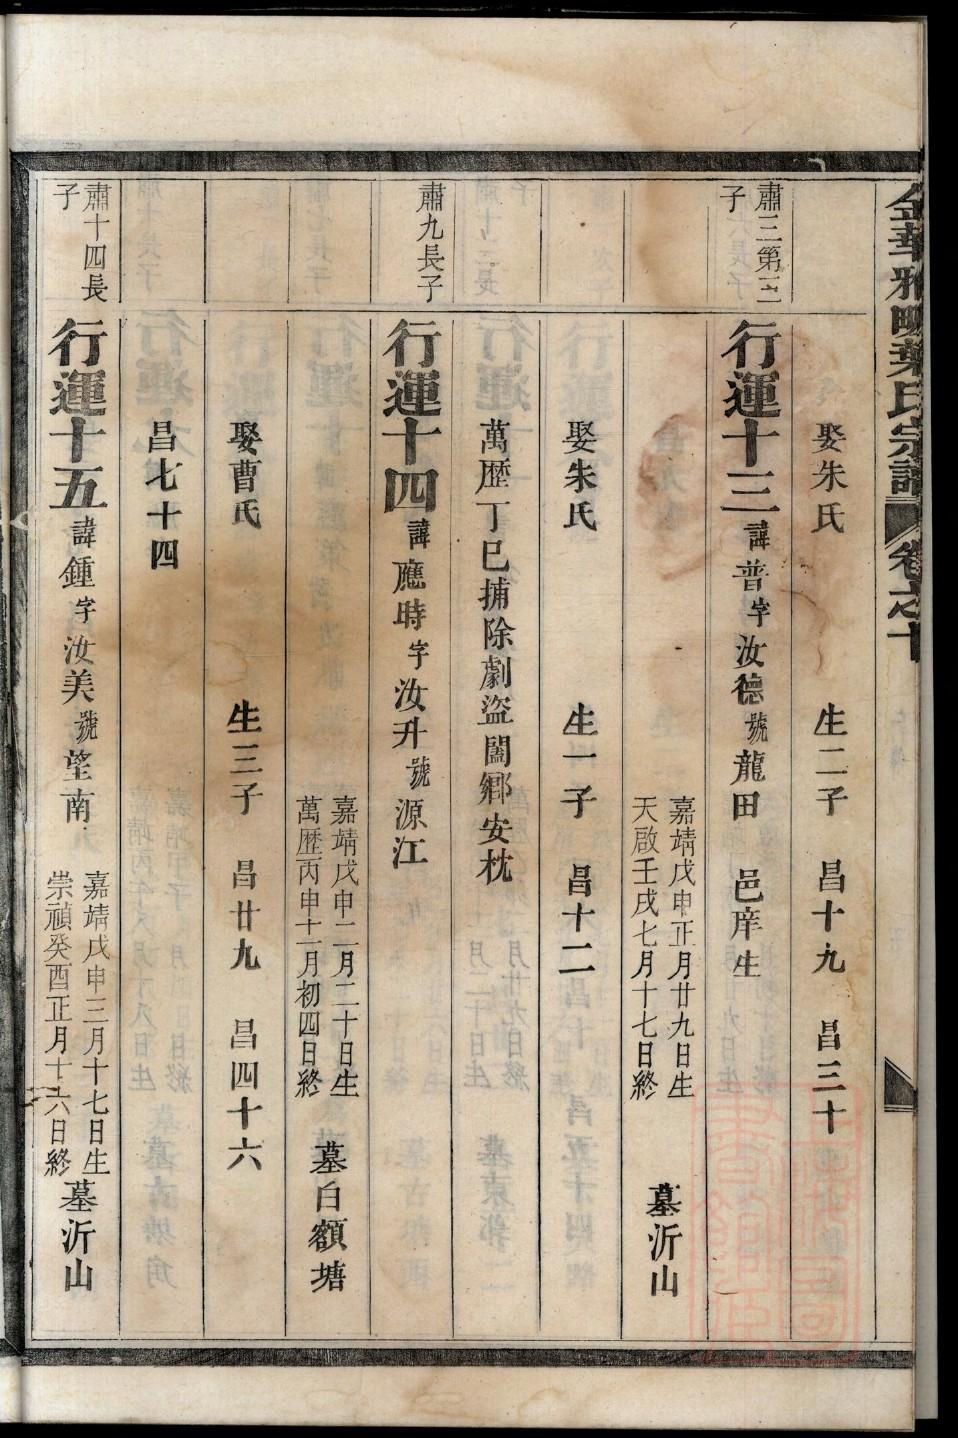 金華雅畈葉氏宗譜 卷之十
娶朱氏 生二子 昌十九 昌三十
肅三第三子
行運十三 諱普字汝德號龍田 邑庠生
嘉靖戊申正月廿九日生
天啟壬戌七月十七日終
墓沂山
娶朱氏 生一子 昌十二
萬歷丁巳捕除劇盜闔鄉安枕
肅九長子
行運十四 諱應時字汝升號源江
嘉靖戊申二月二十日生
萬歷丙申十一月初四日終
墓白額塘
娶曹氏 生三子 昌廿九 昌四十六
昌七十四
肅十四長子
行運十五 諱鍾字汝美號望南
嘉靖戊申三月十七日生
崇禎癸酉正月十六日終
墓沂山